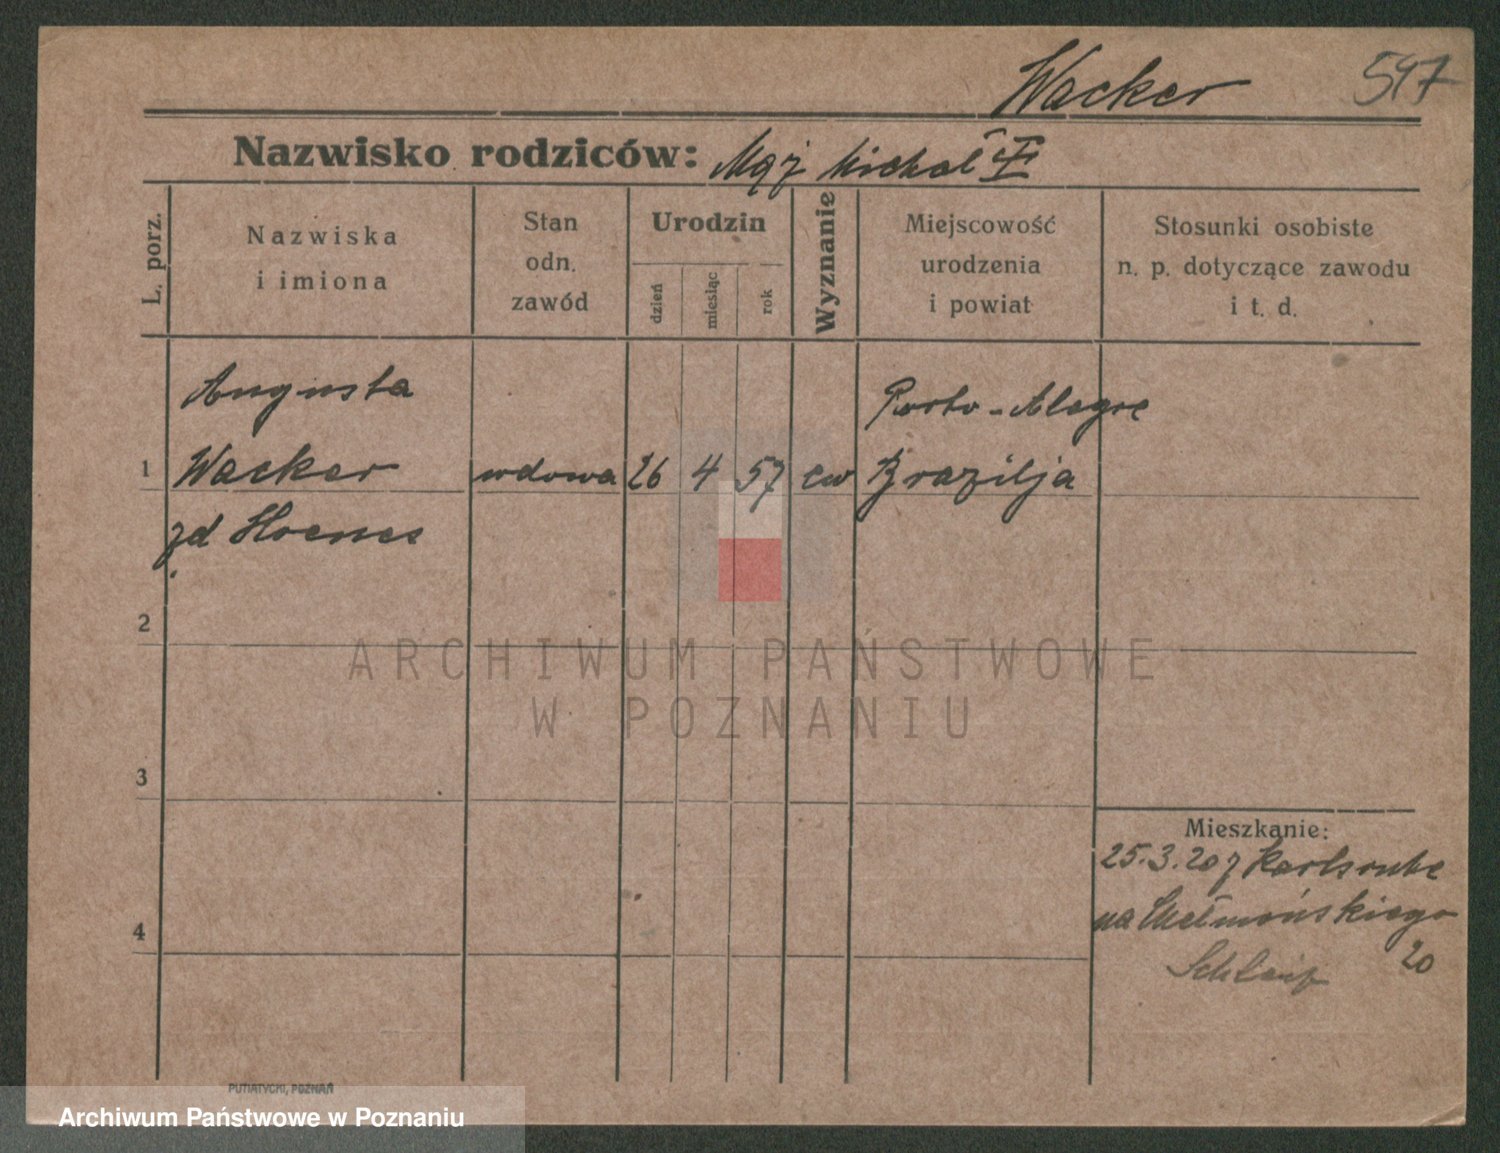 Wacker 597
Nazwisko rodziców: Mąż Michał †
L. porz.
Nazwiska
i imiona
Stan
odn.
zawód
Urodzin
dzień
miesiąc
rok
Wyznanie
Miejscowość
urodzenia
i powiat
Stosunki osobiste
n. p. dotyczące zawodu
i t. d.
Augusta
Porto-Alegre
1 Wacker wdowa 26 4 57 ew Brazilja
żd Hoenes
2
ARCHIWUM PAŃSTWOWE
W POZNANIU
3
Mieszkanie:
25.3.20 z Karlsruhe
na Chełmońskiego
4
20
PUTIATYCKI, POZNAŃ
Archiwum Państwowe w Poznaniu